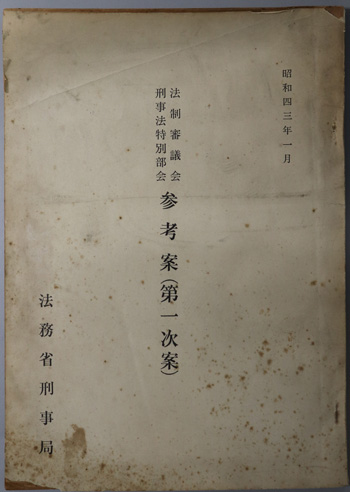 昭和四三年一月
法制審議会
刑事法特別部会
参考案(第一次案)
法務省刑事局